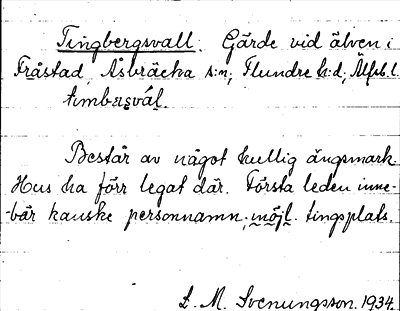 Tingbergsvall. Gärde vid älven i
Fråstad, Åsbräcka s:n, Flundre h:d, Älfsb. l.
timbæsväl.
Består av något kullig ängsmark.
Hus ha förr legat där. Första leden inne-
-bär kanske personnamn, möjl. tingsplats.
S. M. Svenungsson. 1934.